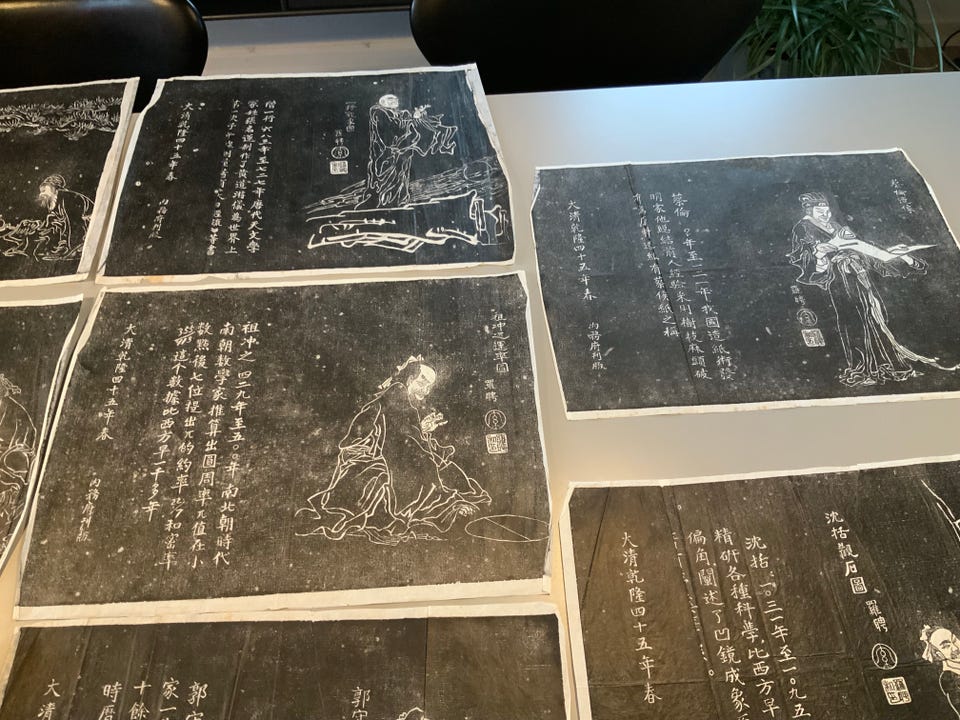 僧一行六八三年至七二七年唐代天文學
大清乾隆四十五年春
內務府刊版
羅聘
蔡倫造紙
羅聘
蔡倫 ？年至一二一年我國造紙術發
明家他總結前人經驗采用樹枝麻頭破
有蔡侯紙之稱
大清乾隆四十五年春
內務府刊版
祖冲之運率圖
羅聘
祖冲之 四二九年至五〇〇年南北朝時代
南朝数學家推算出圓周率π值在小
数點後七位提出π的約率22/7和密率
355/113這个数據比西方早一千多年
大清乾隆四十五年春
內務府刊版
沈括觀石圖
羅聘
沈括 一〇三一年至一〇九五
精研各種科學比西方早
偏角闡述了凹鏡成象
大清乾隆四十五年春
郭守
家一
十餘
時曆
大清
郭守